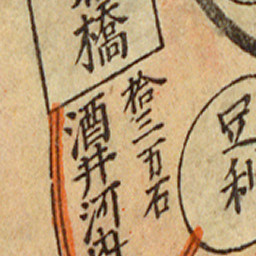 橋
拾三万石
酒井河
足利